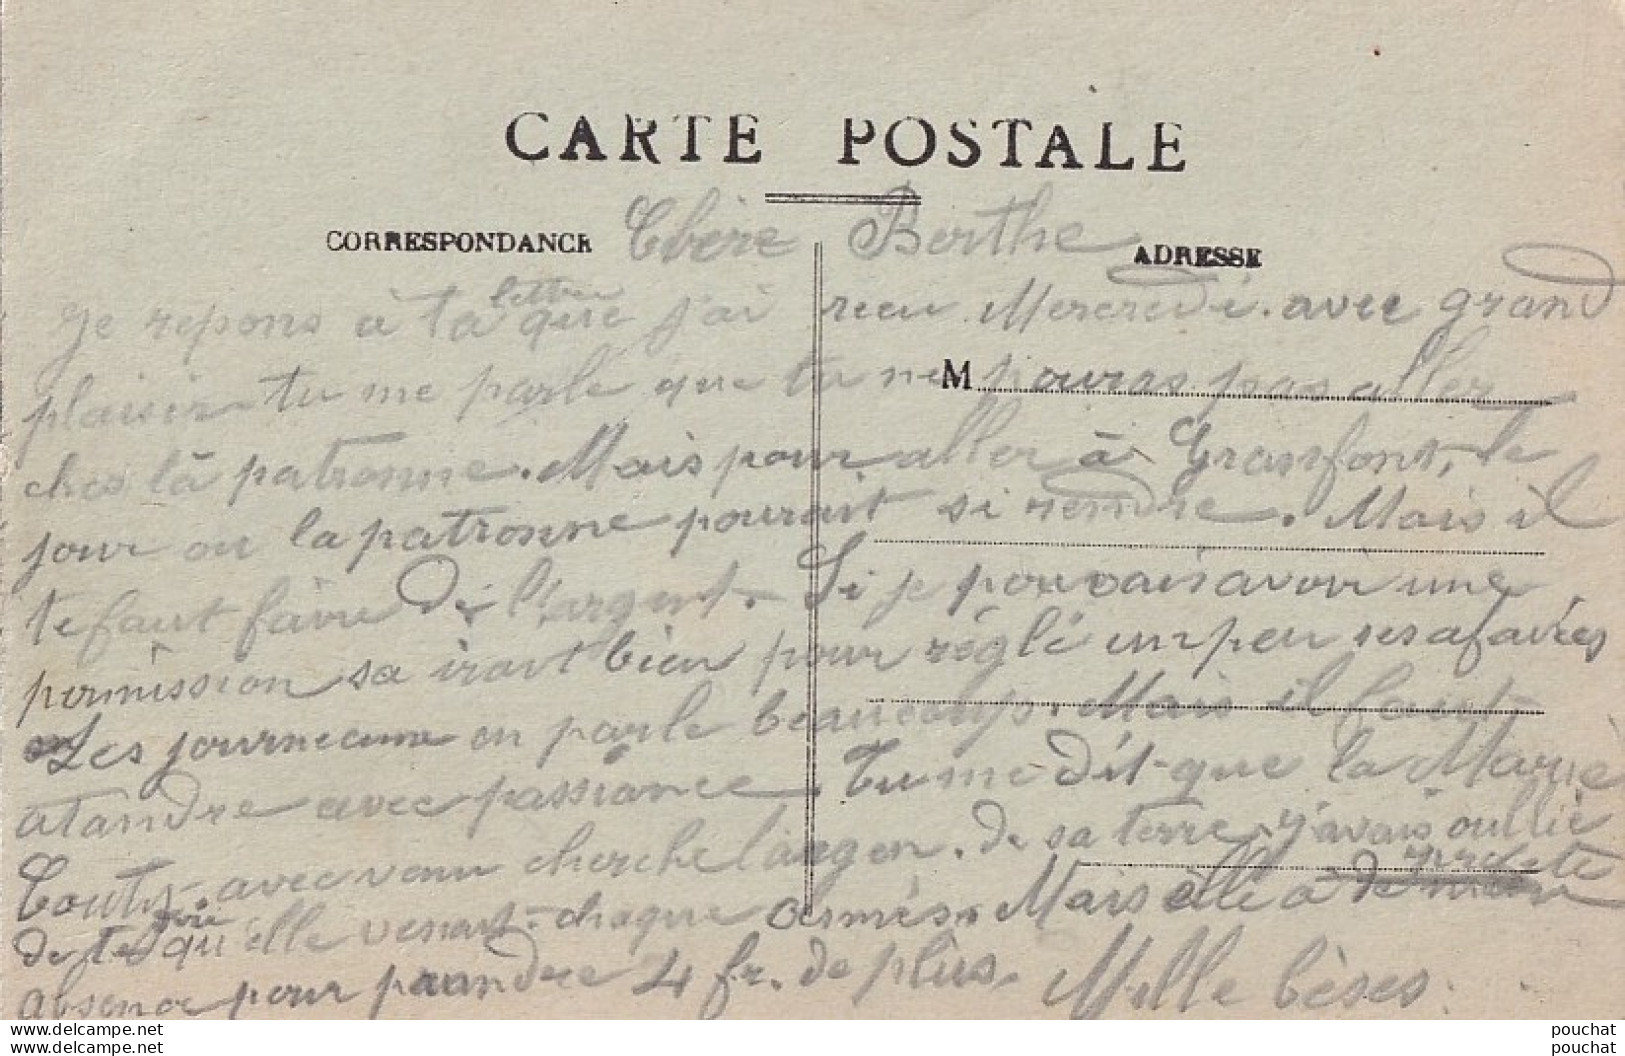 CARTE POSTALE
CORRESPONDANCE
ADRESSE
Chère Berthe
Je repons à ta lettre que j'ai recu Mercredi. avec grand
plaisir tu me parle que tu ne pouras pas aller
M
ches la patronne. Mais pour aller à Granfont, le
jour ou la patronne pourait si rendre. Mais il
te faut faire de l'argent. Si je pouvais avoir une
permission sa irait bien pour réglé un peu ses afaires
Les journeaux en parle beaucoup. Mais il faut
atandre avec passiance. Tu me dit que la Marie
Touty avec venu cherche l'argen. de sa terre, j'avais oullié
de te dire qu'elle venait chaque anné. Mais elle a
absence pour prandre 4 fr. de plus. Mille bèses.
www.delcampe.net
www.delcampe.net
pouchat
pouchat